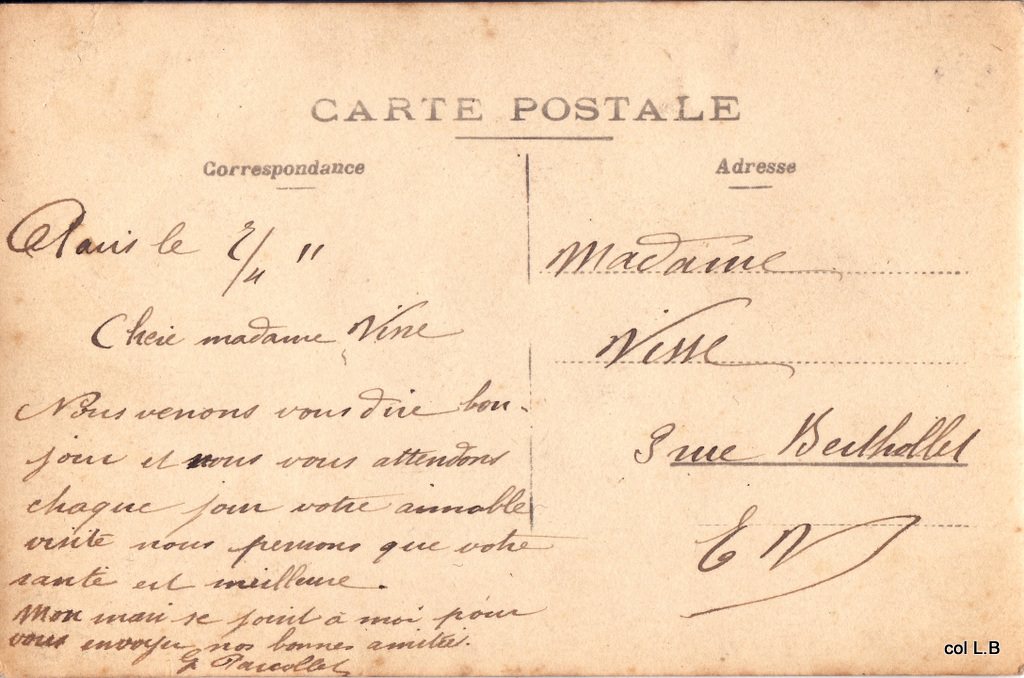 CARTE POSTALE
Correspondance
Paris le 2/4 "
Chère madame Visse
Nous venons vous dire bon-
jour et nous vous attendons
chaque jour votre aimable
visite nous pensons que votre
santé est meilleure.
Mon mari se joint à moi pour
vous envoyer nos bonnes amitiés.
G Parcollet
Adresse
Madame
Visse
3 rue Berthollet
E V
col L.B